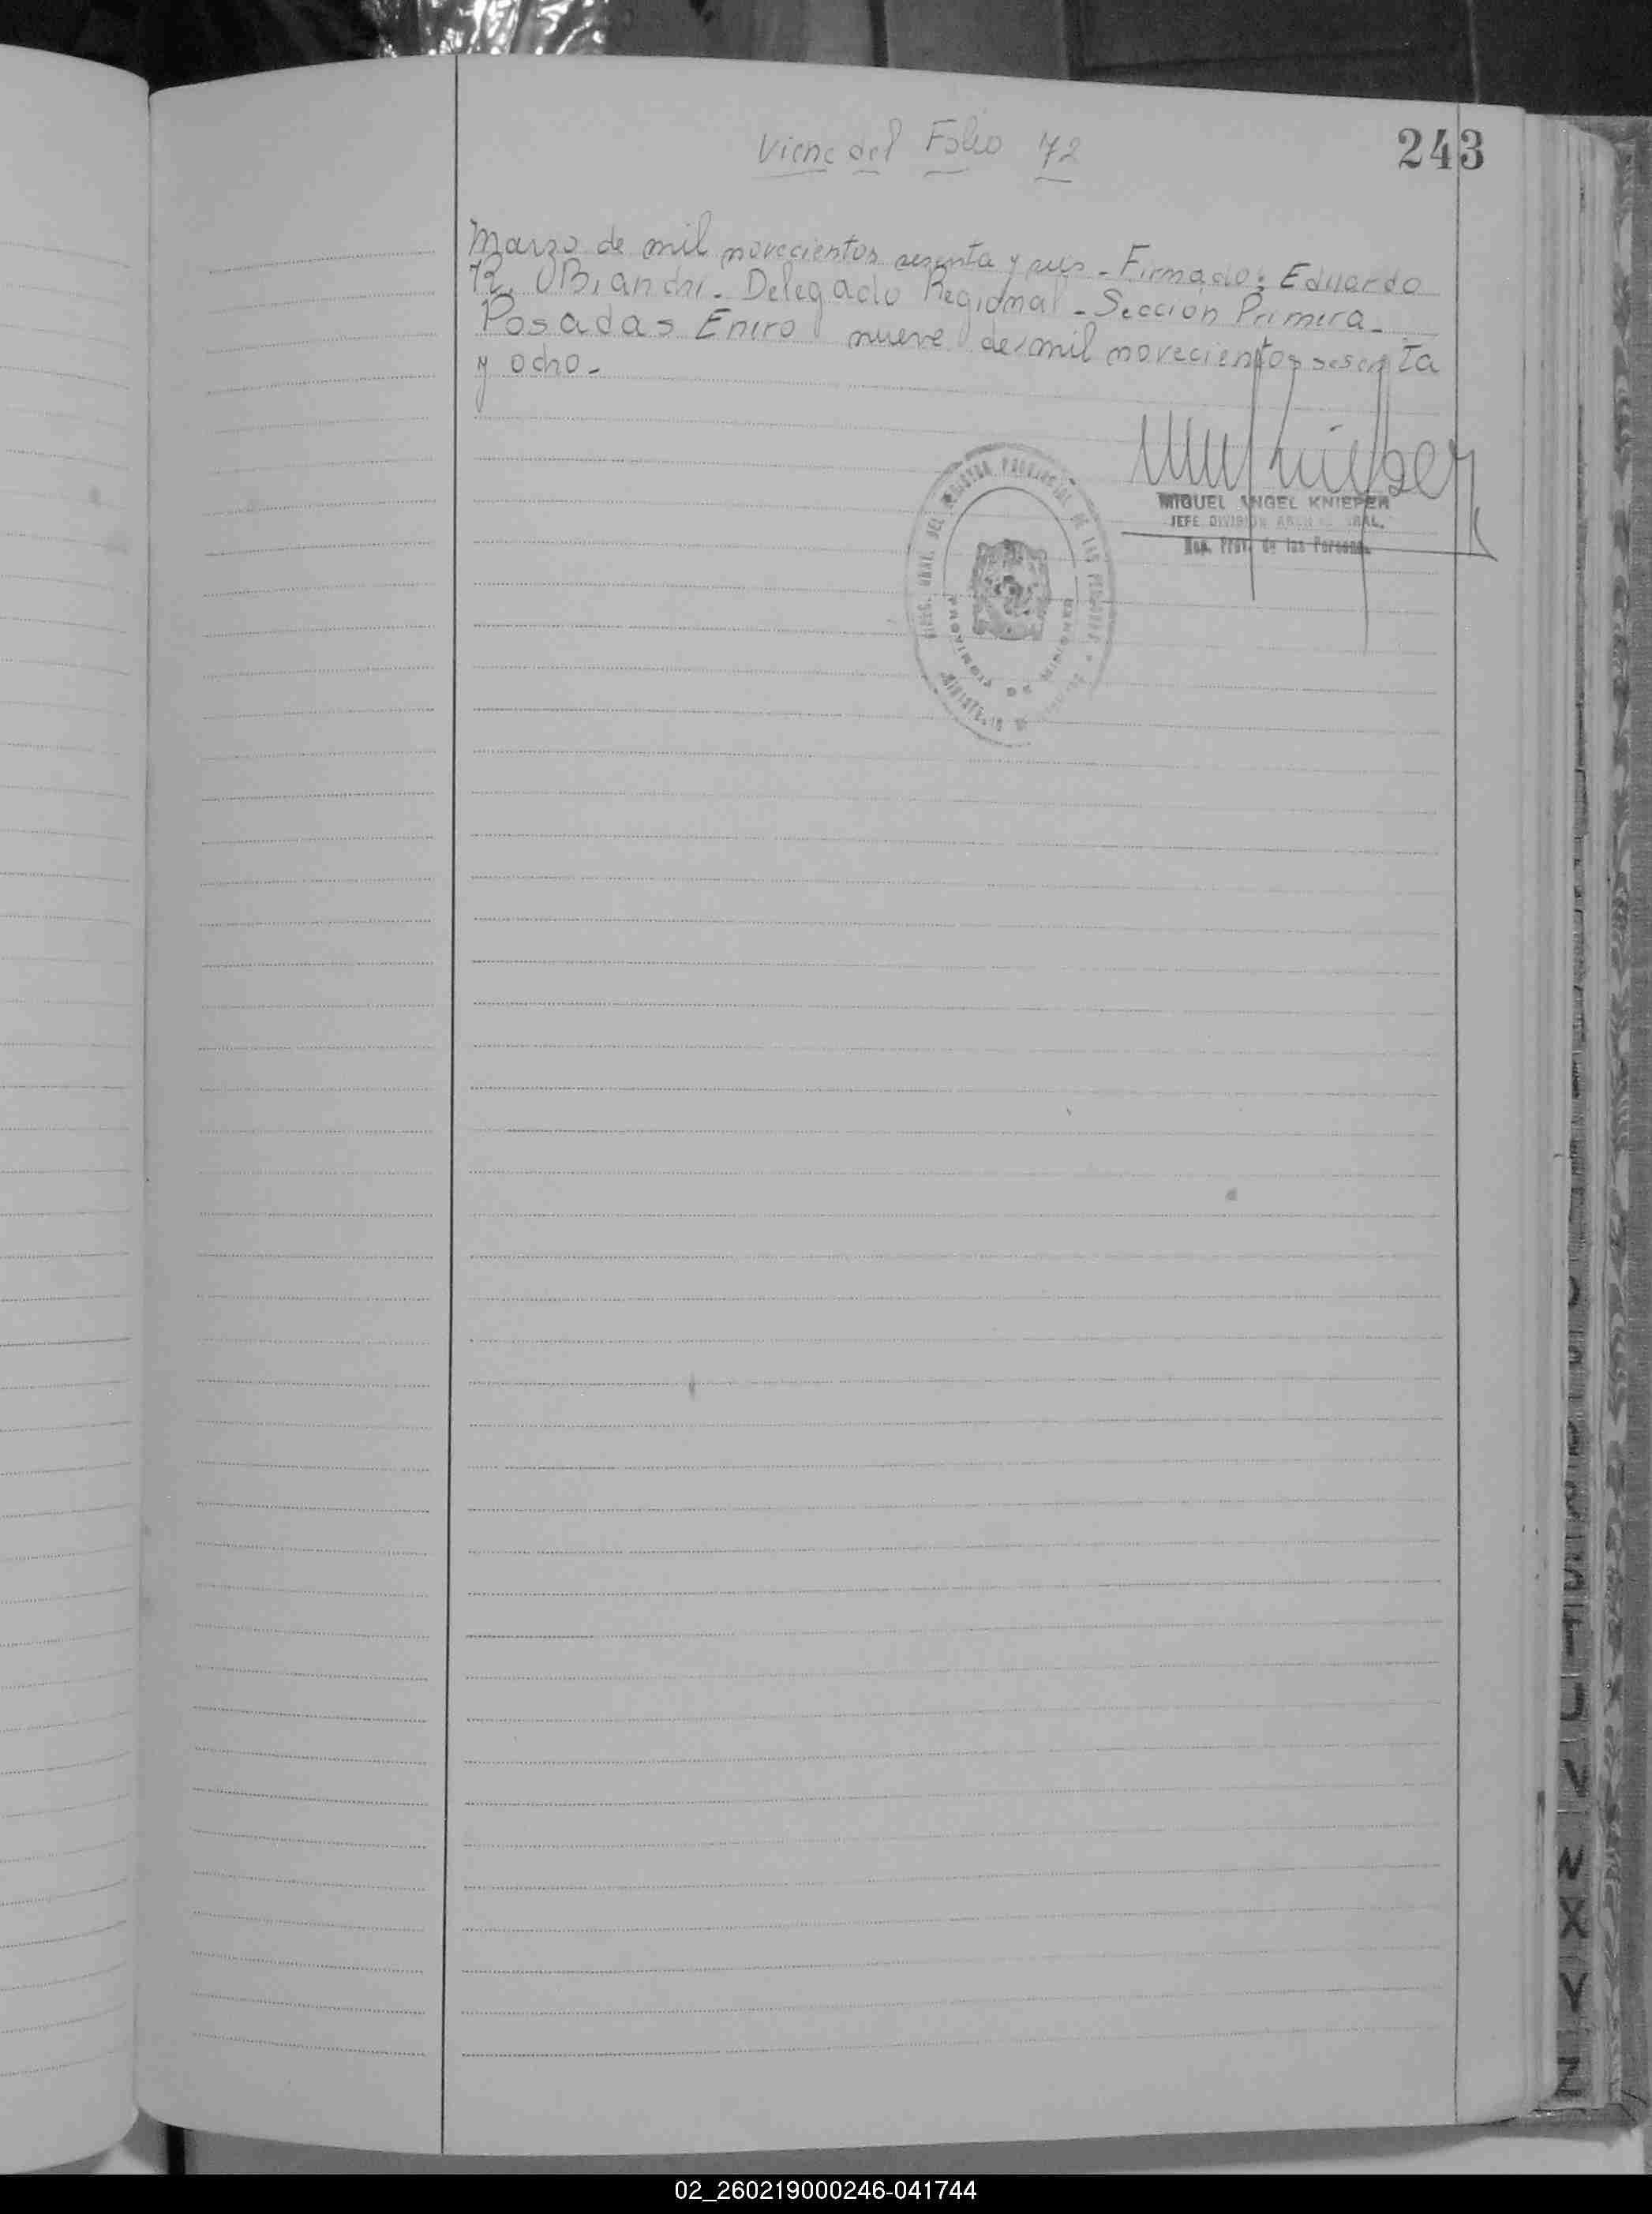 243
Viene del Folio 72
Marzo de mil novecientos sesenta y seis - Firmado: Eduardo
R. Bianchi - Delegado Regional - Sección Primera -
Posadas Enero nueve de mil novecientos sesenta
y ocho -
MIGUEL ANGEL KNIEPER
JEFE DIVISION
Reg. Prov. de las Person
DIREC. GRAL. DEL REGISTRO PROVINCIAL DE LAS PERSONAS
PROVINCIA DE MISIONES
MINISTERIO DE
T
U
V
W
X
Y
Z
02_260219000246-041744